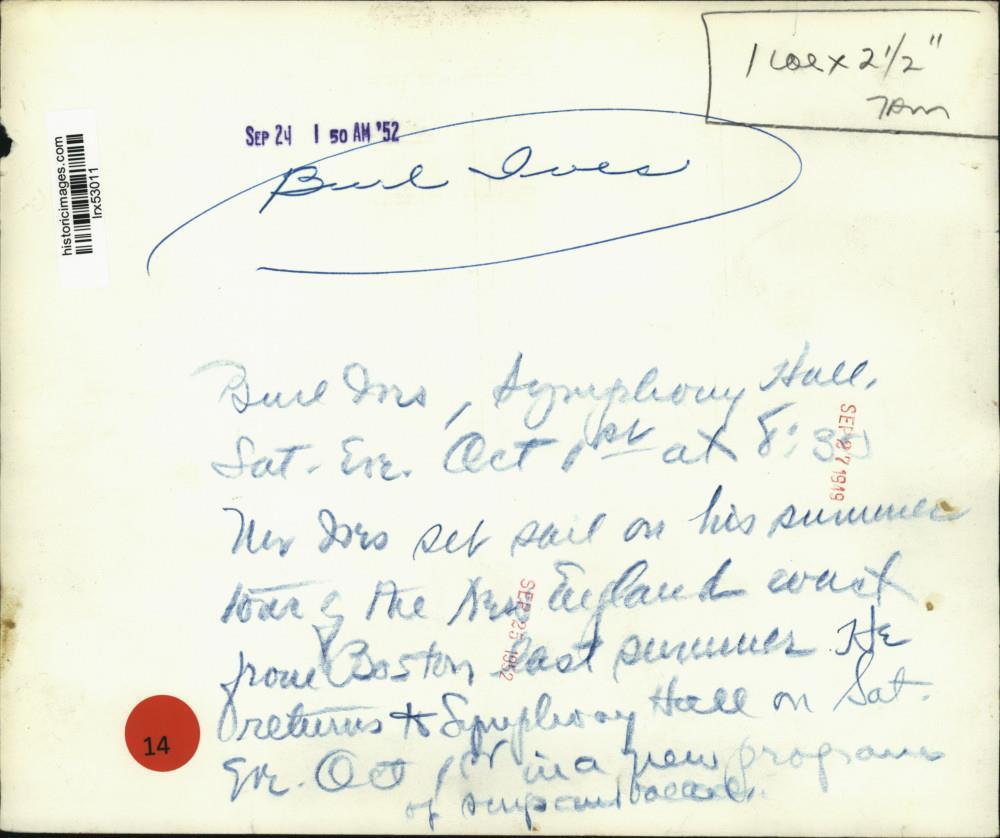 1 col x 2 1/2"
7AM
SEP 24 1 50 AM '52
Burl Ives
historicimages.com
lrx53011
Burl Ives, Symphony Hall,
Sat. Eve. Oct 1st at 8:30
SEP 27 1949
Mr Ives set sail on his summer
tour of the New England coast
SEP 25 1952
from Boston last summer. He
returns to Symphony Hall on Sat.
Eve. Oct 1st in a new program
of songs and ballads.
14